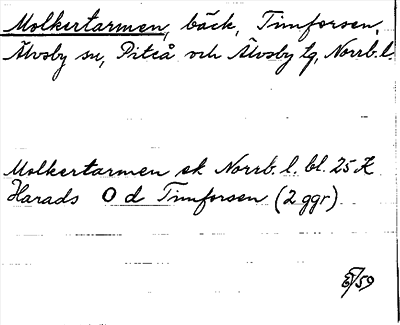 Molkertarmen, bäck, Timforsen,
Älvsby sn, Piteå och Älvsby tg, Norrb.l.
Molkertarmen sk Norrb.l. bl. 25 K
Harads O d Timforsen (2 ggr)
/59